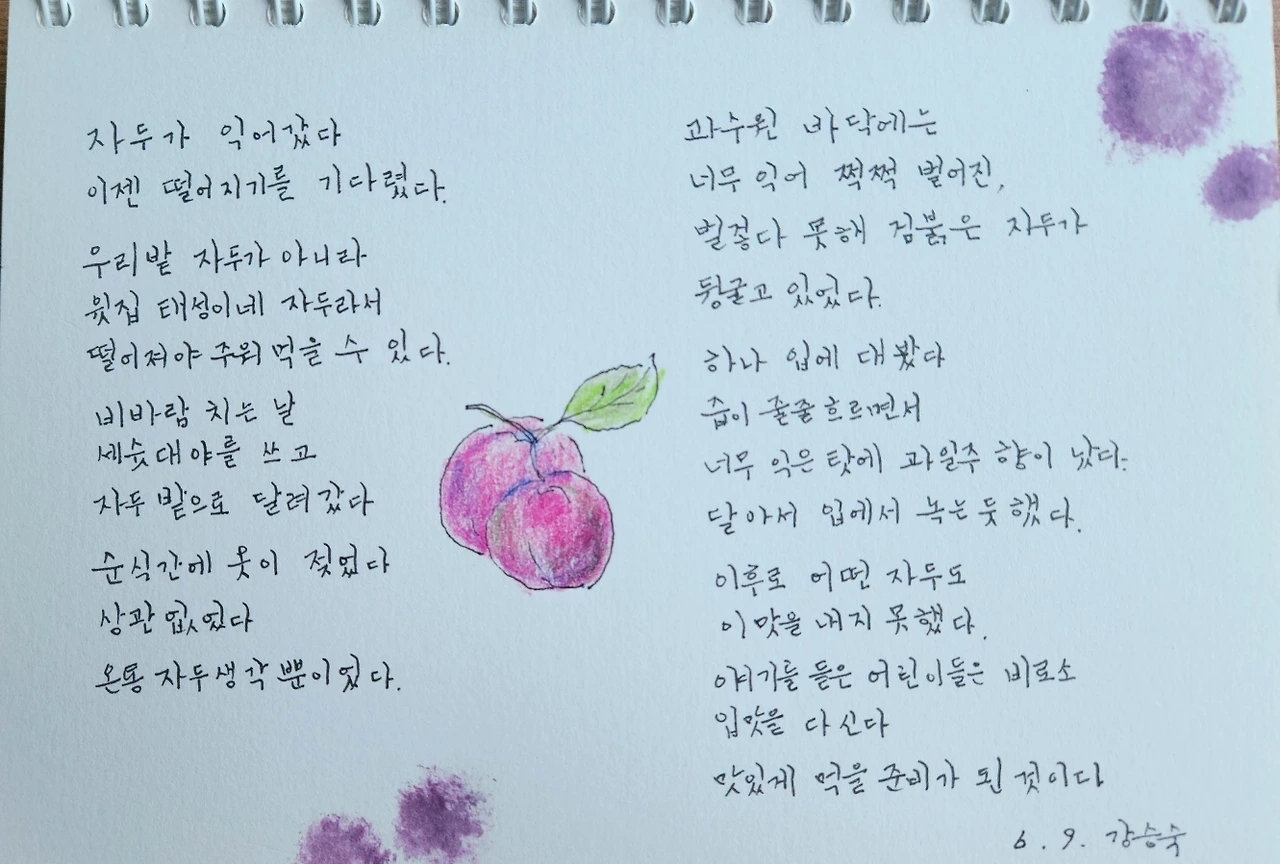 자두가 익어갔다
이젠 떨어지기를 기다렸다.
우리밭 자두가 아니라
윗집 태성이네 자두라서
떨어져야 주워 먹을 수 있다.
비바람 치는 날
세숫대야를 쓰고
자두 밭으로 달려갔다
순식간에 옷이 젖었다
상관 없었다
온통 자두생각 뿐이었다.
과수원 바닥에는
너무 익어 쩍쩍 벌어진,
벌겋다 못해 검붉은 자두가
뒹굴고 있었다.
하나 입에 대봤다
즙이 줄줄 흐르면서
너무 익은 탓에 과일주 향이 났다.
달아서 입에서 녹는듯 했다.
이후로 어떤 자두도
이맛을 내지 못했다.
얘기를 들은 어린이들은 비로소
입맛을 다신다
맛있게 먹을 준비가 된 것이다
6.9. 강승숙